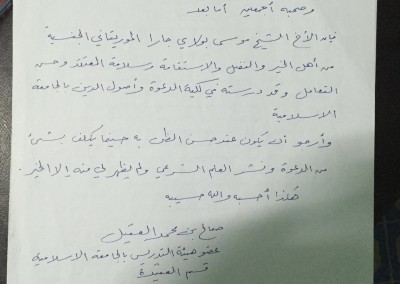 وصحبه أجمعين أما بعد
فإن الأخ الشيخ موسى بولاي جارا الموريتاني الجنسية
من أهل الخير والفضل والاستقامة وسلامة المعتقد وحسن
التعامل وقد درسته في كلية الدعوة وأصول الدين بالجامعة
الاسلامية
وأرجو أن يكون عند حسن الظن به حينما يكلف بشيء
من الدعوة ونشر العلم الشرعي ولم يظهر لي منه إلا الخير .
هكذا أحسبه والله حسيبه
صالح بن محمد العقيل
عضو هيئة التدريس بالجامعة الاسلامية
قسم العقيدة